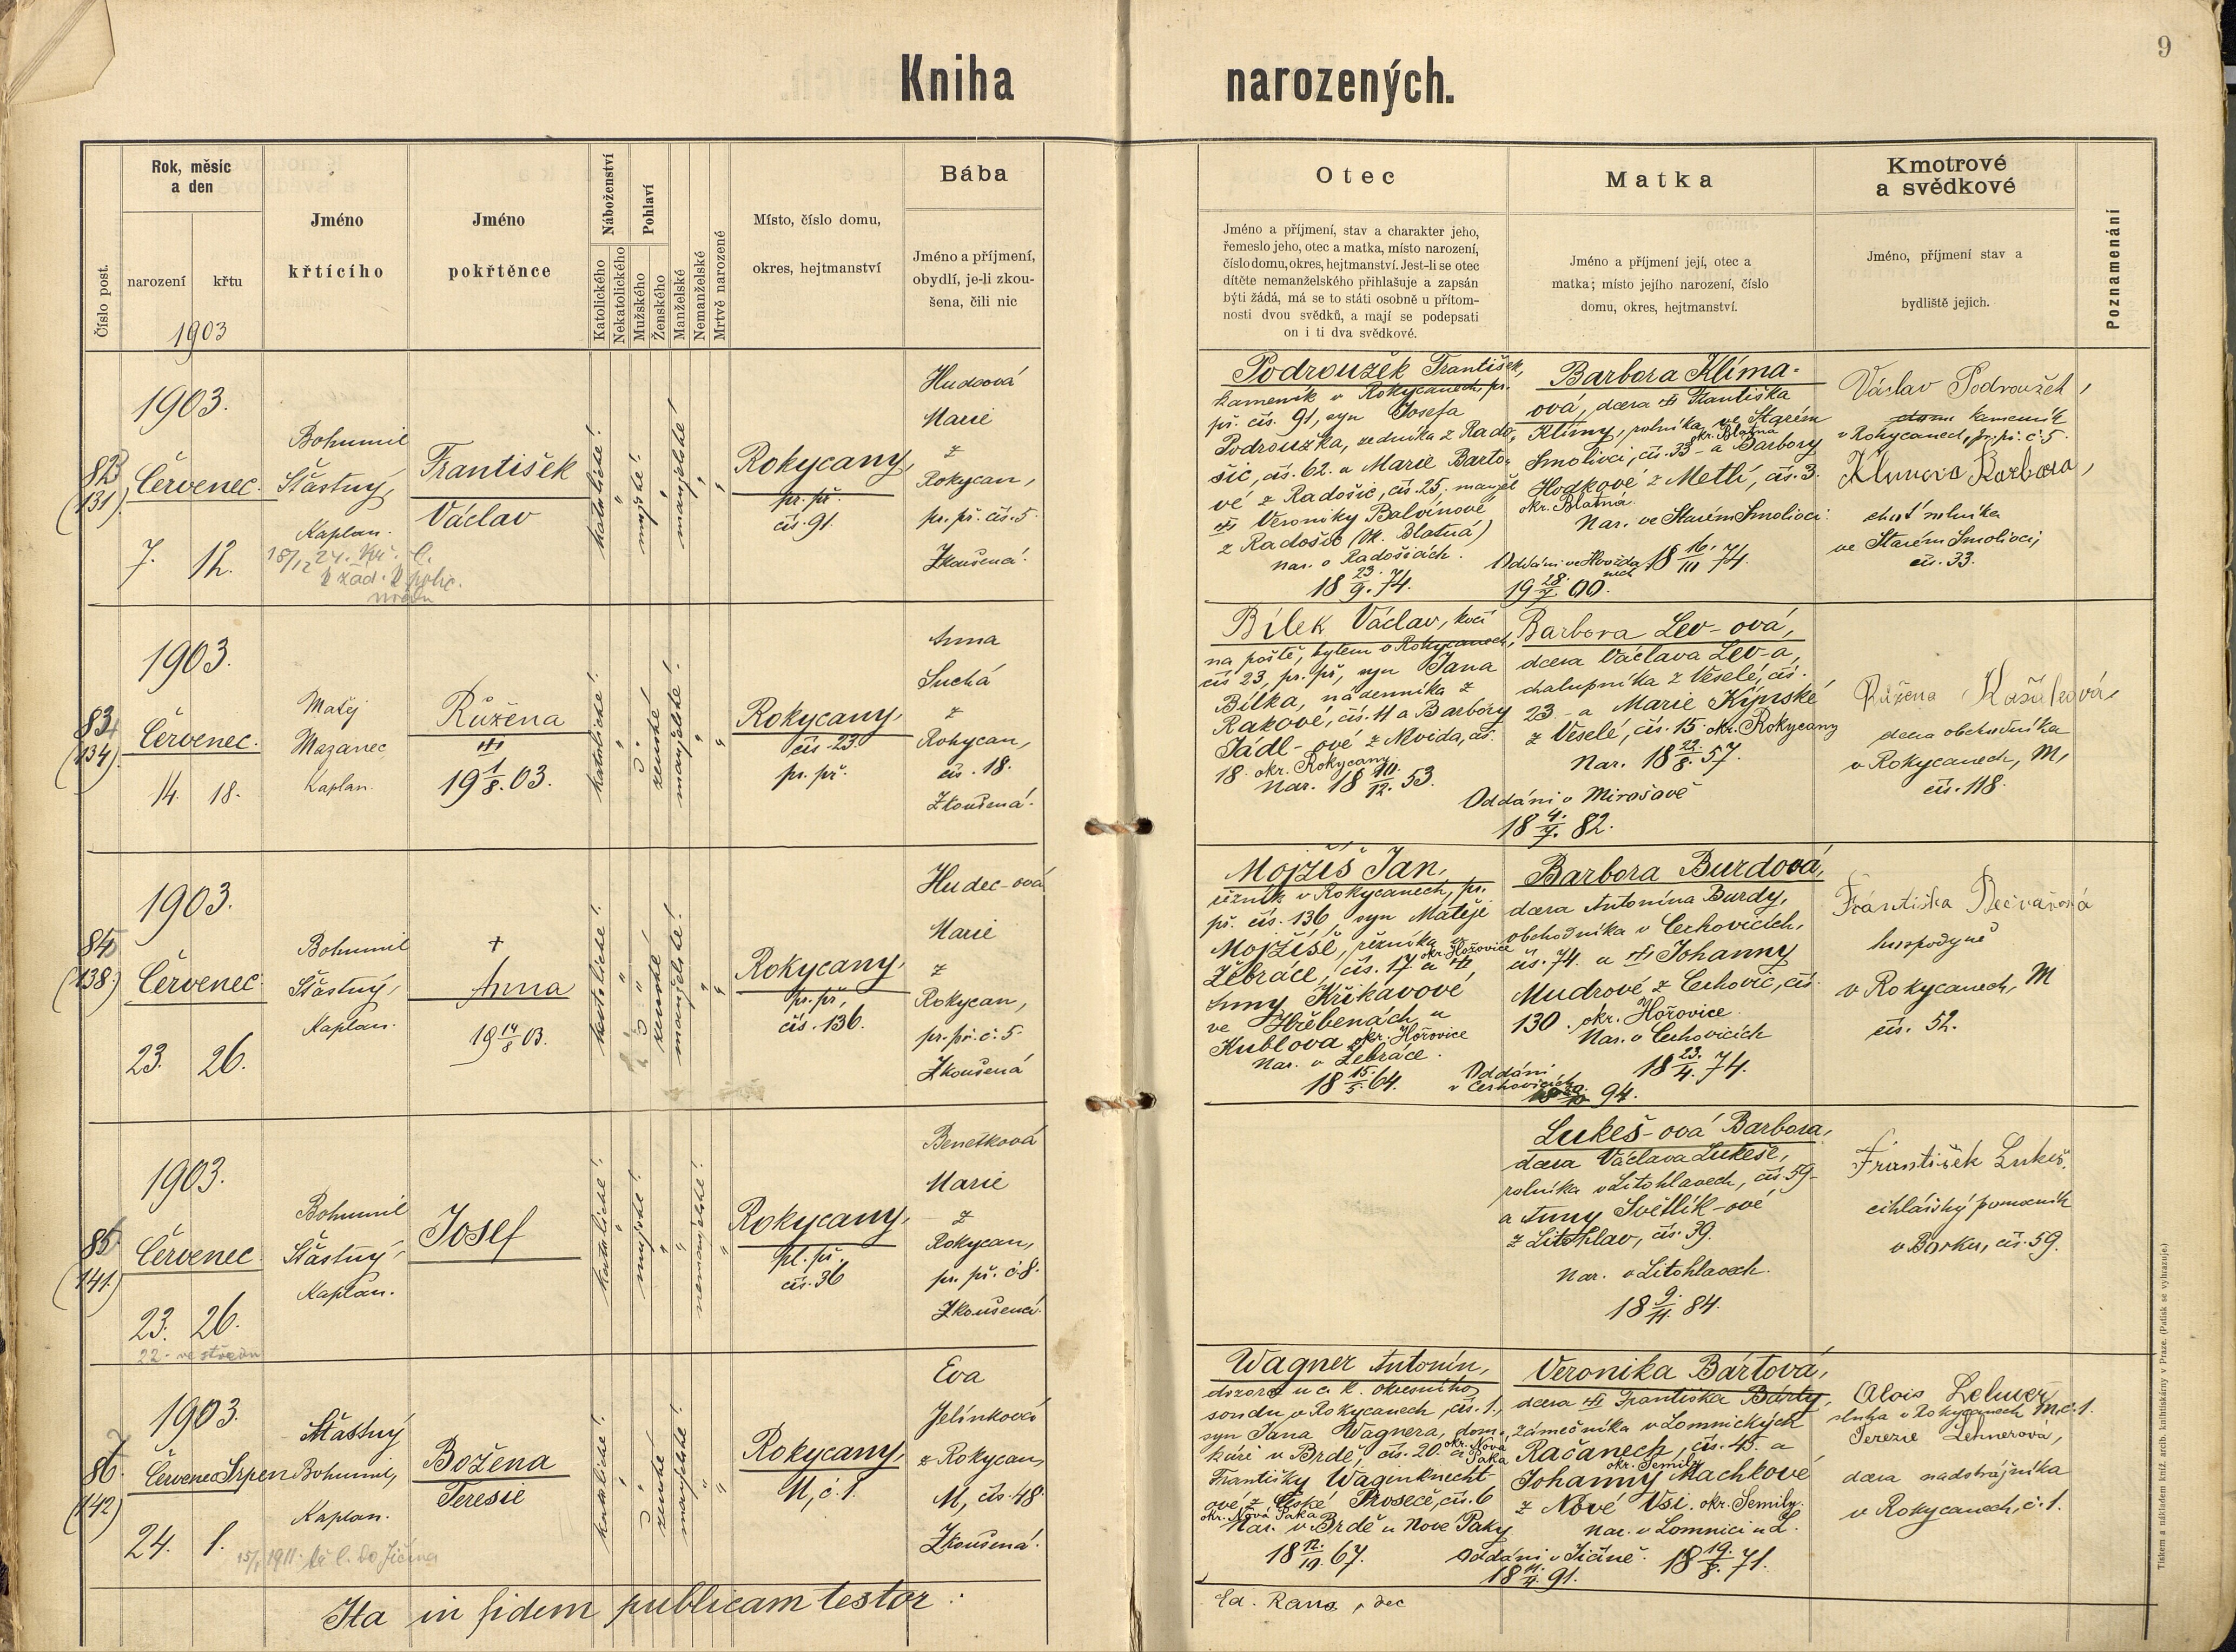 9
Kniha narozených.
Číslo post.
Rok, měsíc
a den
narození
křtu
1903
Jméno
křtícího
Jméno
pokřtěnce
Náboženství
Katolického
Nekatolického
Pohlaví
Mužského
Ženského
Manželské
Nemanželské
Mrtvě narozené
Místo, číslo domu,
okres, hejtmanství
Bába
Jméno a příjmení,
obydlí, je-li zkou-
šena, čili nic
Otec
Jméno a příjmení, stav a charakter jeho,
řemeslo jeho, otec a matka, místo narození,
číslo domu, okres, hejtmanství. Jest-li se otec
dítěte nemanželského přihlašuje a zapsán
býti žádá, má se to státi osobně u přítom-
nosti dvou svědků, a mají se podepsati
on i ti dva svědkové.
Matka
Jméno a příjmení její, otec a
matka; místo jejího narození, číslo
domu, okres, hejtmanství.
Kmotrové
a svědkové
Jméno, příjmení stav a
bydliště jejich.
Poznamenání
1903.
(131)
Červenec.
7. 12.
Bohumil
Šťastný,
Kaplan.
František
Václav
katolické!
mužské!
manželské!
Rokycany,
pr. př.
čís. 91.
Marie
z
Rokycan,
pr. př. čís. 5.
Zkoušená!
Podroužek František,
kameník v Rokycanech, pr.
př. čís. 91, syn Josefa
Podroužka, zedníka z Rado-
šic, čís. 62. a Marie Barto-
vé z Radošic, čís. 25, manžel
Veroniky Balvínové
z Radošic (ok. Blatná)
nar. v Radošicích.
18 23./9. 74.
Barbora Klíma-
ová, dcera Františka
Klímy, rolníka, ve Starém
okr. Blatná
Smolivci, čís. 33 - a Barbory
Hodkové z Metlí, čís. 3.
okr. Blatná.
Nar. ve Starém Smolivci.
18 16./III 74.
Václav Podroužek,
kameník
v Rokycanech, pr. př. č. 5.
Barbora,
choť rolníka
ve Starém Smolivci,
čís. 33.
1903.
(134)
Červenec.
14. 18.
Matěj
Mazanec
Kaplan.
Růžena
19 1/8. 03.
katolické!
ženské!
manželské!
Rokycany,
čís. 23.
pr. př.
Anna
Suchá
z
Rokycan,
čís. 18.
Zkoušená.
Bílek Václav, kočí
na poště, bytem v Rokycanech,
čís 23, pr. př, syn Jana
Bílka, nádenníka z
Rakové, čís. 11 a Barbory
Jádl-ové z Mvida, čís.
18. okr. Rokycany.
Nar. 18 10/12. 53.
Barbora Lev-ová,
dcera Václava Lev-a,
chalupníka z Veselé, čís.
23. - a Marie Kýnské
z Veselé, čís. 15. okr. Rokycany
Nar. 18 23./8. 57.
Oddáni v Mirošově
Růžena
dcera obchodníka
v Rokycanech, M,
čís. 118.
1903.
(138.)
Červenec.
23. 26.
Bohumil
Šťastný,
Kaplan.
+
Anna
19 14/8 03.
katolické!
ženské!
manželské!
Rokycany,
pr. př,
čís. 136.
Hudec-ová
Marie
z
Rokycan,
pr. př. č. 5.
Zkoušená
Mojžíš Jan,
řezník v Rokycanech, pr.
př. čís. 136, syn Matěje
Mojžíše, řezníka
okr. Hořovice
Žebráce, čís. 17 a
Anny Křikavové
ve Hřebenách u
Kublova okr. Hořovice
Nar. v Žebráce.
18 15./5. 64.
Barbora Burdová,
dcera Antonína Burdy,
obchodníka v Cerhovicích,
čís. 74. a Johanny
Mudrové z Cerhovic, čís.
130. okr. Hořovice.
Nar. v Cerhovicích
18 23./4. 74.
Oddáni
v Cerhovicích
94.
Františka
hospodyně
v Rokycanech, M
čís. 52.
1903.
(141.)
Červenec
23. 26.
22. ve středu
Bohumil
Šťastný,
Kaplan.
Josef
katolické!
mužské!
nemanželské!
Rokycany,
pl. př.
čís. 36
Benešková
Marie
z
Rokycan,
pr. př. č. 8.
Zkoušená.
Lukeš-ová Barbora,
dcera Václava Lukeše,
rolníka v Litohlavech, čís. 59 -
a Anny Světlík-ové
z Litohlav, čís. 39.
Nar. v Litohlavech.
18 9./11. 84.
František Lukeš,
cihlářský pomocník
v Borku, čís. 59.
1903.
(142)
Červenec Srpen
24. 1.
Šťastný
Bohumil,
Kaplan.
Božena
Teresie
katolické!
ženské!
manželské!
Rokycany,
M, č. 1.
Eva
Jelínková
z Rokycan,
M, čís. 48.
Zkoušená!
Wagner Antonín,
dozorce u c. k. okresního
soudu v Rokycanech, čís. 1.,
syn Jana Wagnera, dom-
káře v Brdě, čís. 20. a
okr. Nová Paka
Františky Wagenknecht-
ové z České Proseče, čís. 6
okr. Nová Paka
Nar. v Brdě u Nové Paky
18 12./10. 67.
Veronika Bártová,
dcera Františka Bárty,
zámečníka v Lomnických
Račanech, čís. 45. a
okr. Semily
Johanny Machkové
z Nové Vsi. okr. Semily.
Nar. v Lomnici n. L.
18 19./8. 71.
Oddáni v Jičíně.
Alois
sluha v Rokycanech M. č. 1.
Terezie Lehnerová,
dcera nadstrážníka
v Rokycanech, č. 1.
Ita in fidem publicam testor:
Ed. Rana, dec
Tiskem a nákladem kníž. arcib. knihtiskárny v Praze. (Patisk se vyhrazuje.)